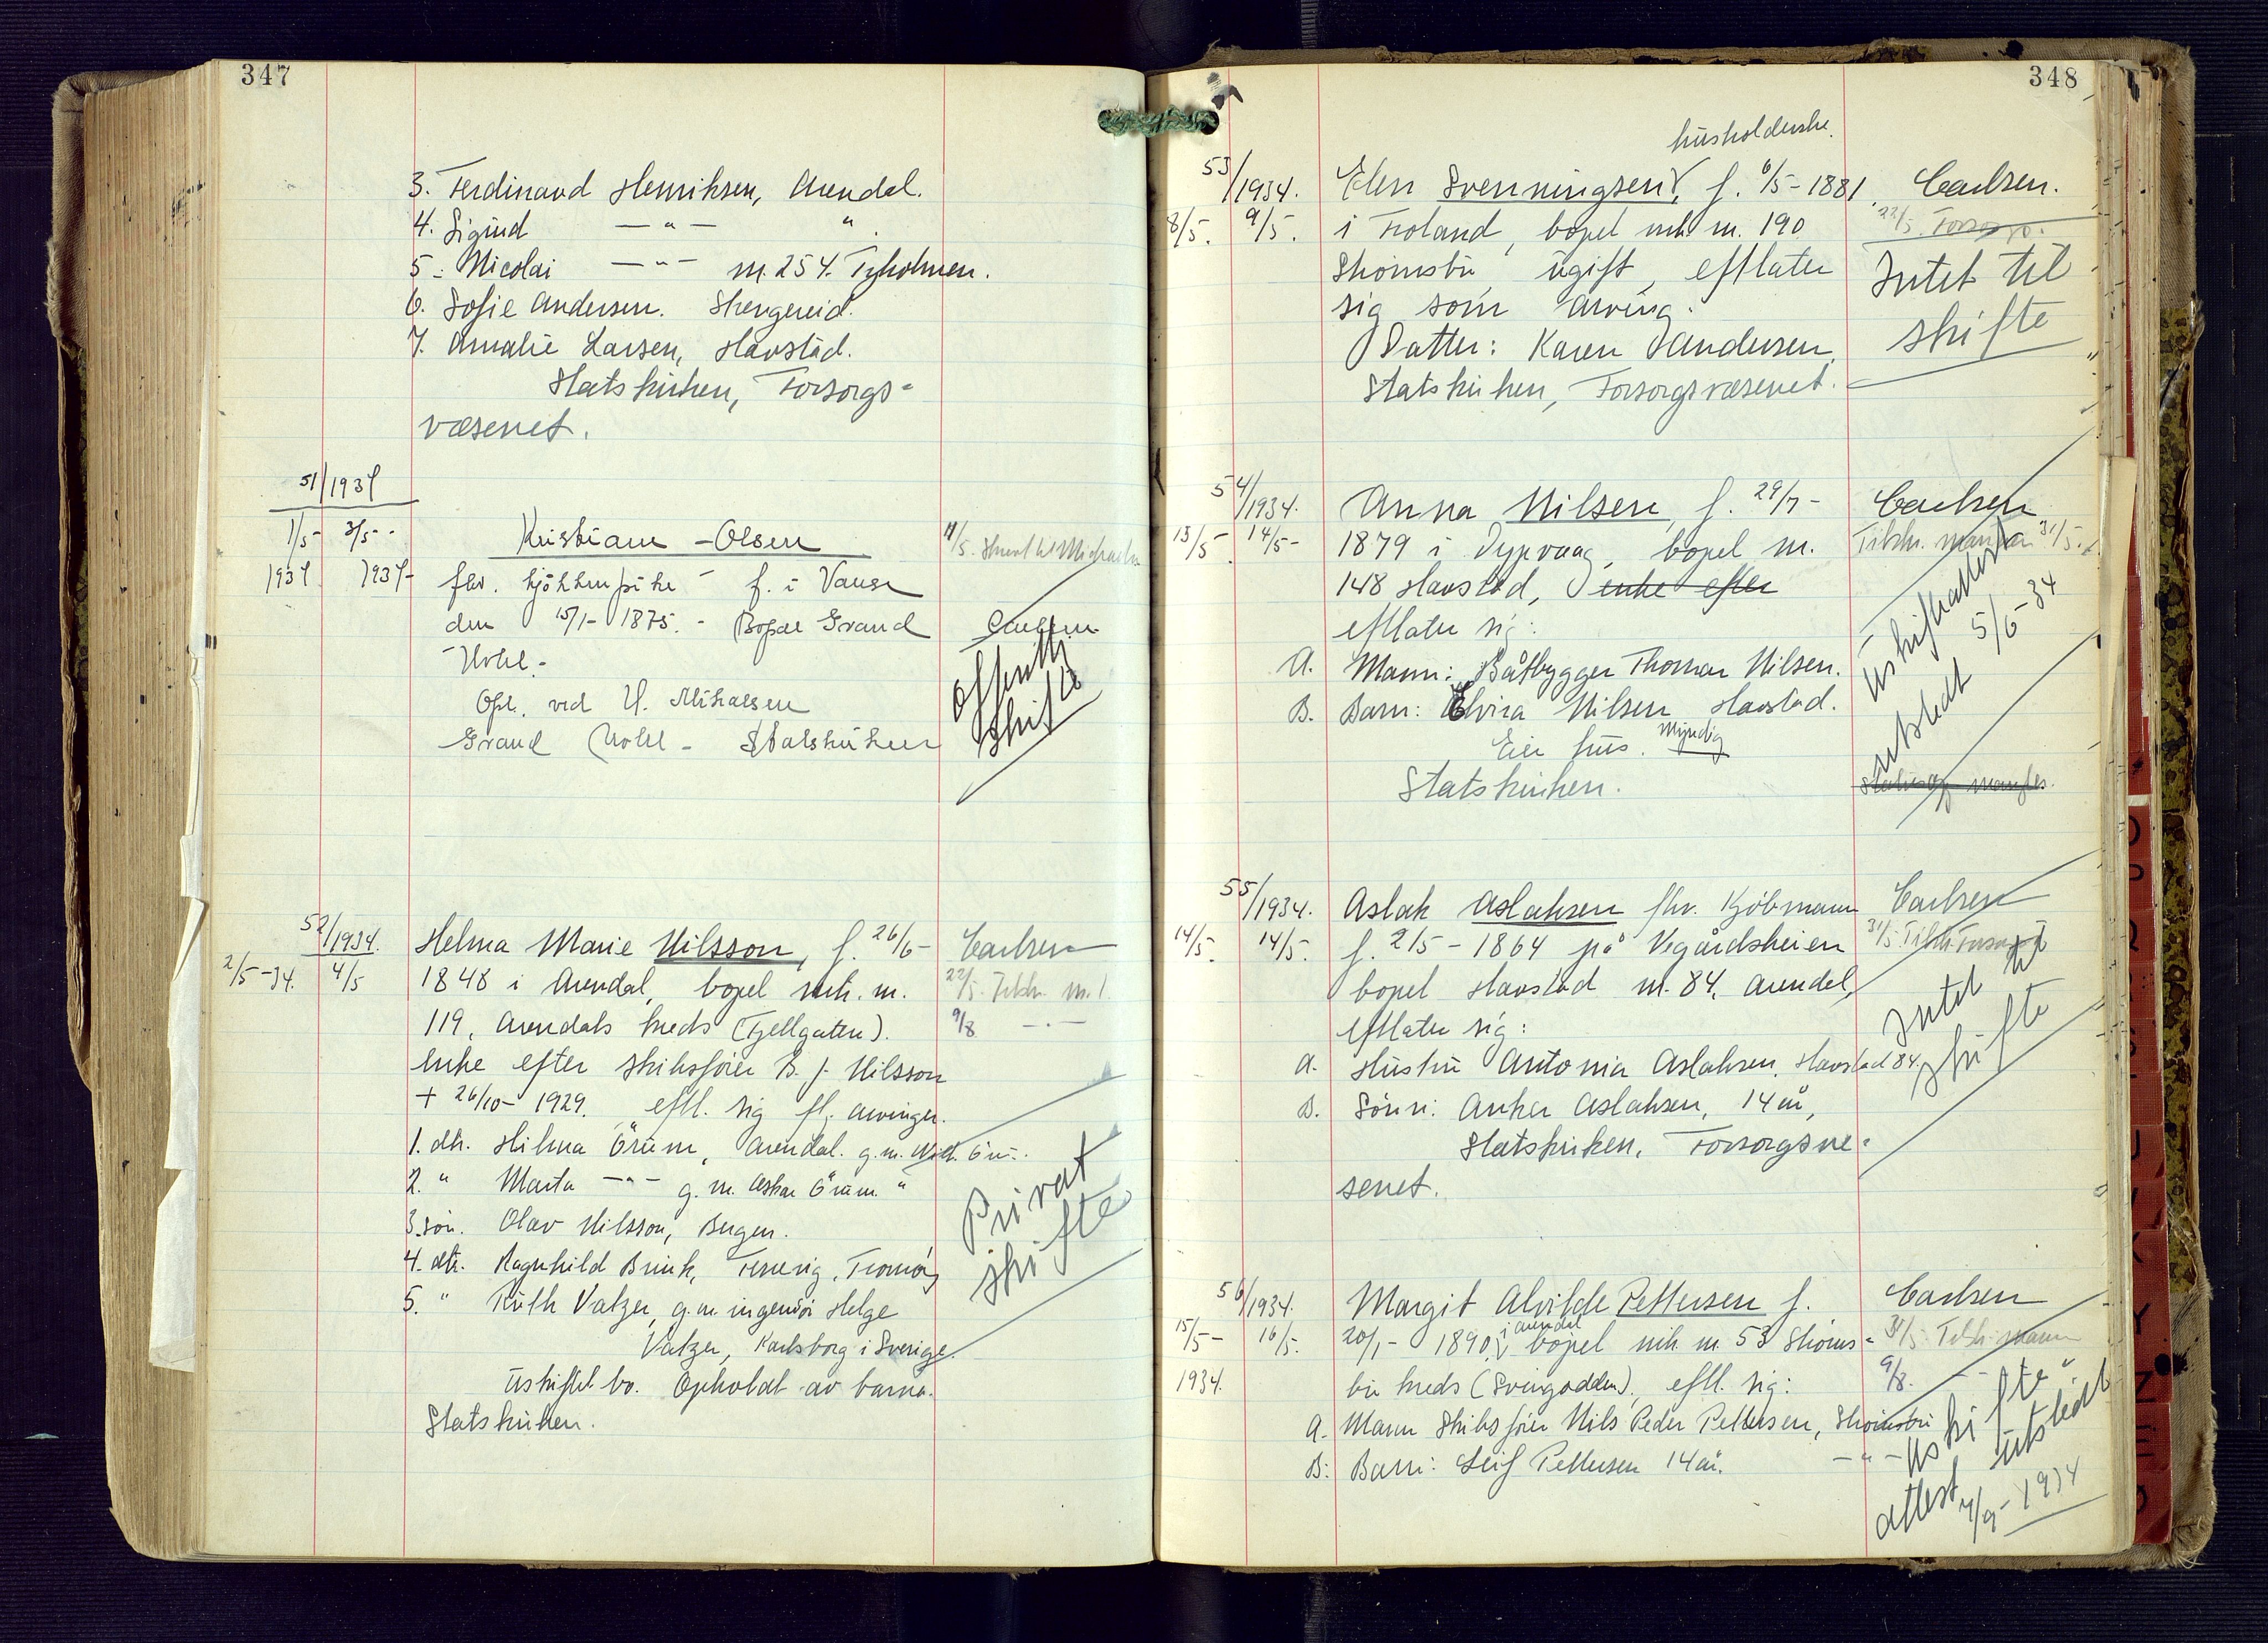 347
3. Ferdinand Henriksen, Arendal.
4. Sigurd — " — " .
5. Nicolai — " — m. 254. Tyholmen.
6. Sofie Andersen. Strengereid.
7. Amalie Larsen, Havstad.
Statskirken, Forsorgs-
væsenet.
51/1934
1/5- 3/5-- Kristiane - Olsen
1934 1934- fhv. kjökkenpike - f. i Vanse
den 15/1- 1875. - Bopæl Grand
Hotel. -
Opl. ved H. Mikalsen
Grand Hotel - Statskirken
Carlsen
Offentlig
skifte
52/1934. Helma Marie Nilsson, f. 26/6- Carlsen
2/5-34. 4/5 1848 i Arendal, bopel mtr. nr. 22/5. Tilskr. nr. 1.
119, Arendals kreds (Fjellgaten). 9/8 — " —
enke efter skibsfører B. J. Nilsson
+ 26/10- 1929, eftl. sig flg. arvinger.
1. dtr. Hilma Örum, Arendal. g. m. Örum.
2. " Marta — " — g. m. Oskar Örum. "
3. sön. Olav Nilsson, Bergen.
4. dtr. Ragnhild Brink, Tromöy
5. " Ruth Vatzer, g. m. ingeniör Helge
Vatzer, Karlsborg i Sverige.
Uskiftet bo. Opholdt av barna.
Statskirken.
Privat
skifte
348
husholderske.
53/1934. Elen Svenningsen, f. 6/5-1881, Carlsen.
8/5. 9/5. i Froland, bopel mtr. nr. 190 22/5.
Strömsbu ugift, efterlater Intet til
sig som arving: skifte
Datter: Karen Andersen,
Statskirken, Forsorgsvæsenet.
54/1934. Anna Nilsen, f. 29/7- Carlsen
13/5. 14/5- 1879 i Dypvaag, bopel nr. Tilskr. mannen 31/5.
148 Havstad, enke efter
efterlater sig:
A. Mann: Båtbygger Thomas Nilsen.
B. Barn: Elvira Nilsen Havstad.
Eier hus. Myndig
Statskirken.
Uskifteattest
utstedt 5/6-34
mangler.
55/1934. Aslak Aslaksen fhv. Kjöbmann Carlsen
14/5. 14/5. f. 2/5 - 1864 på Vegårdsheien 31/5
bopel Havstad nr. 84, Arendal,
efterlater sig:
A. Hustru Antonia Aslaksen, Havstad 84.
B. Sönn: Anker Aslaksen, 14 år,
Statskirken, Forsorgsve-
senet.
Intet til
skifte
56/1934. Margit Alvilde Pettersen f. Carlsen
15/5- 16/5. 20/1- 1890, i Arendal bopel mtr. nr. 53 Ströms- 31/5 Tilskr. mann
1934. bu kreds (Svingodden), eftl. sig: 9/8. — " —
A. Mann Skibsfører Nils Peder Pettersen, Strömsbu
B: Barn: Leif Pettersen 14 år. — " —
Uskifte-
attest utstedt
4/9-1934